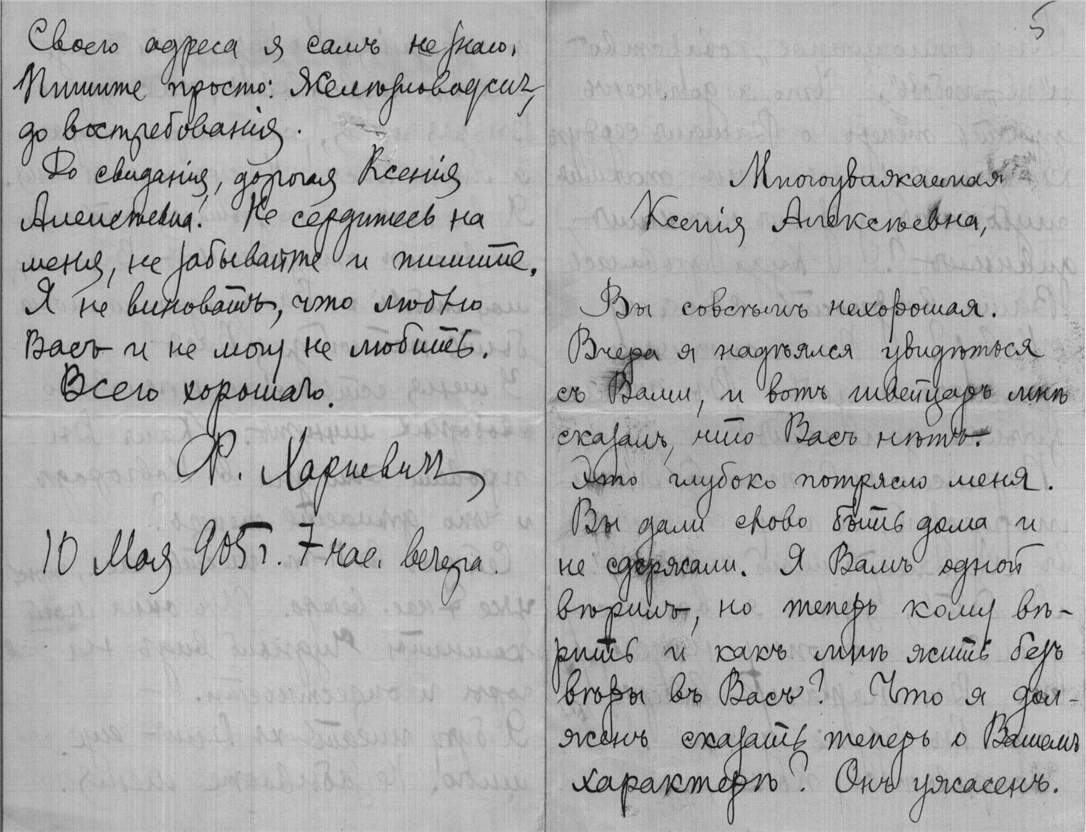 Своего адреса я самъ не знаю.
Пишите просто: Железноводскъ,
до востребованія.
До свиданія, дорогая Ксенія
Алексѣевна! Не сердитесь на
меня, не забывайте и пишите.
Я не виноватъ, что люблю
Васъ и не могу не любить.
Всего хорошаго.
Р. Харкевичъ
10 Мая 905 г. 7 час. вечера.
5
Многоуважаемая
Ксенія Алексѣевна,
Вы совсѣмъ нехорошая.
Вчера я надѣялся увидѣться
съ Вами, и вотъ швейцаръ мнѣ
сказалъ, что Васъ нѣтъ.
Это глубоко потрясло меня.
Вы дали слово быть дома и
не сдержали. Я Вамъ одной
вѣрилъ, но теперь кому вѣ-
рить и какъ мнѣ жить безъ
вѣры въ Васъ? Что я дол-
женъ сказать теперь о Вашемъ
характерѣ? Онъ ужасенъ.